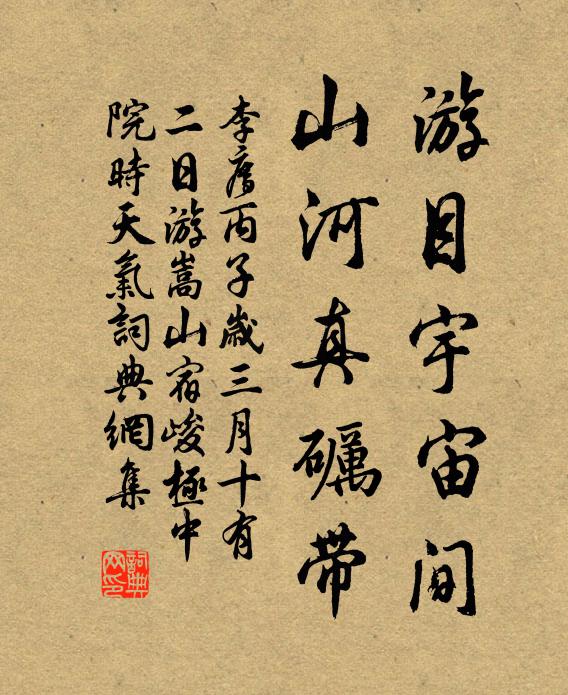 游目宇宙間
山河真礪带
李廌丙子歲三月十有
二日游嵩山宿峻極中
院時天氣詞典網集
詞典
网印